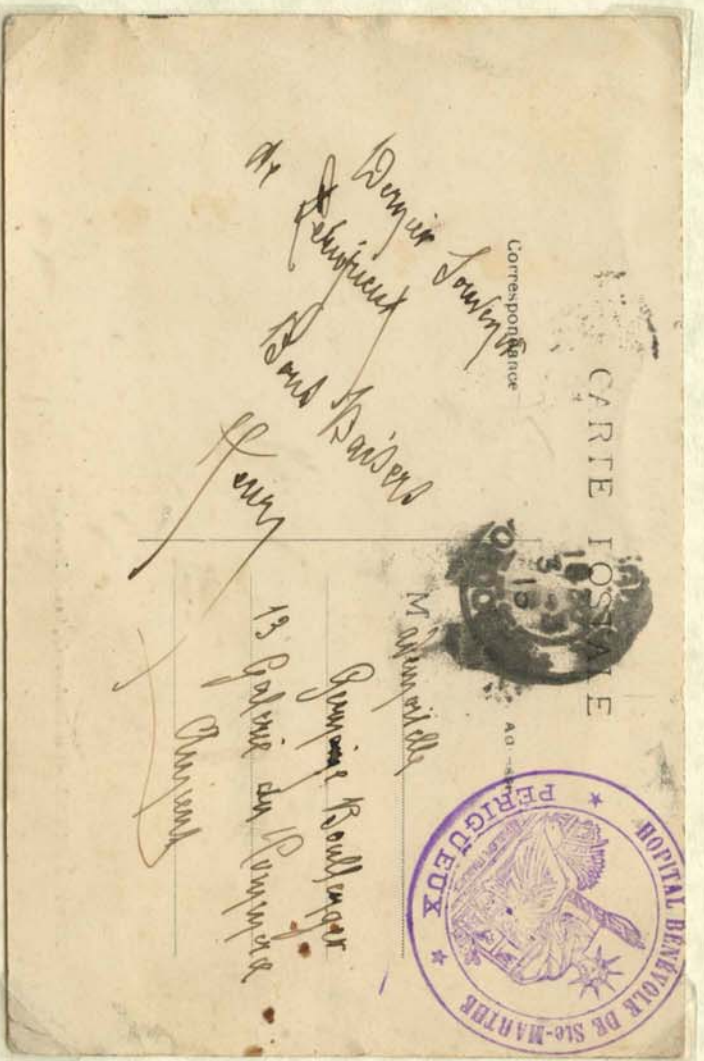 CARTE POSTALE
Correspondance
Dernier Souvenir
de Périgueux
Bons Baisers
Henri
Mademoiselle
Germaine Boullenger
13 Galerie du Commerce
Amiens
HOPITAL BÉNÉVOLE DE Ste-MARTHE
★ PÉRIGUEUX ★